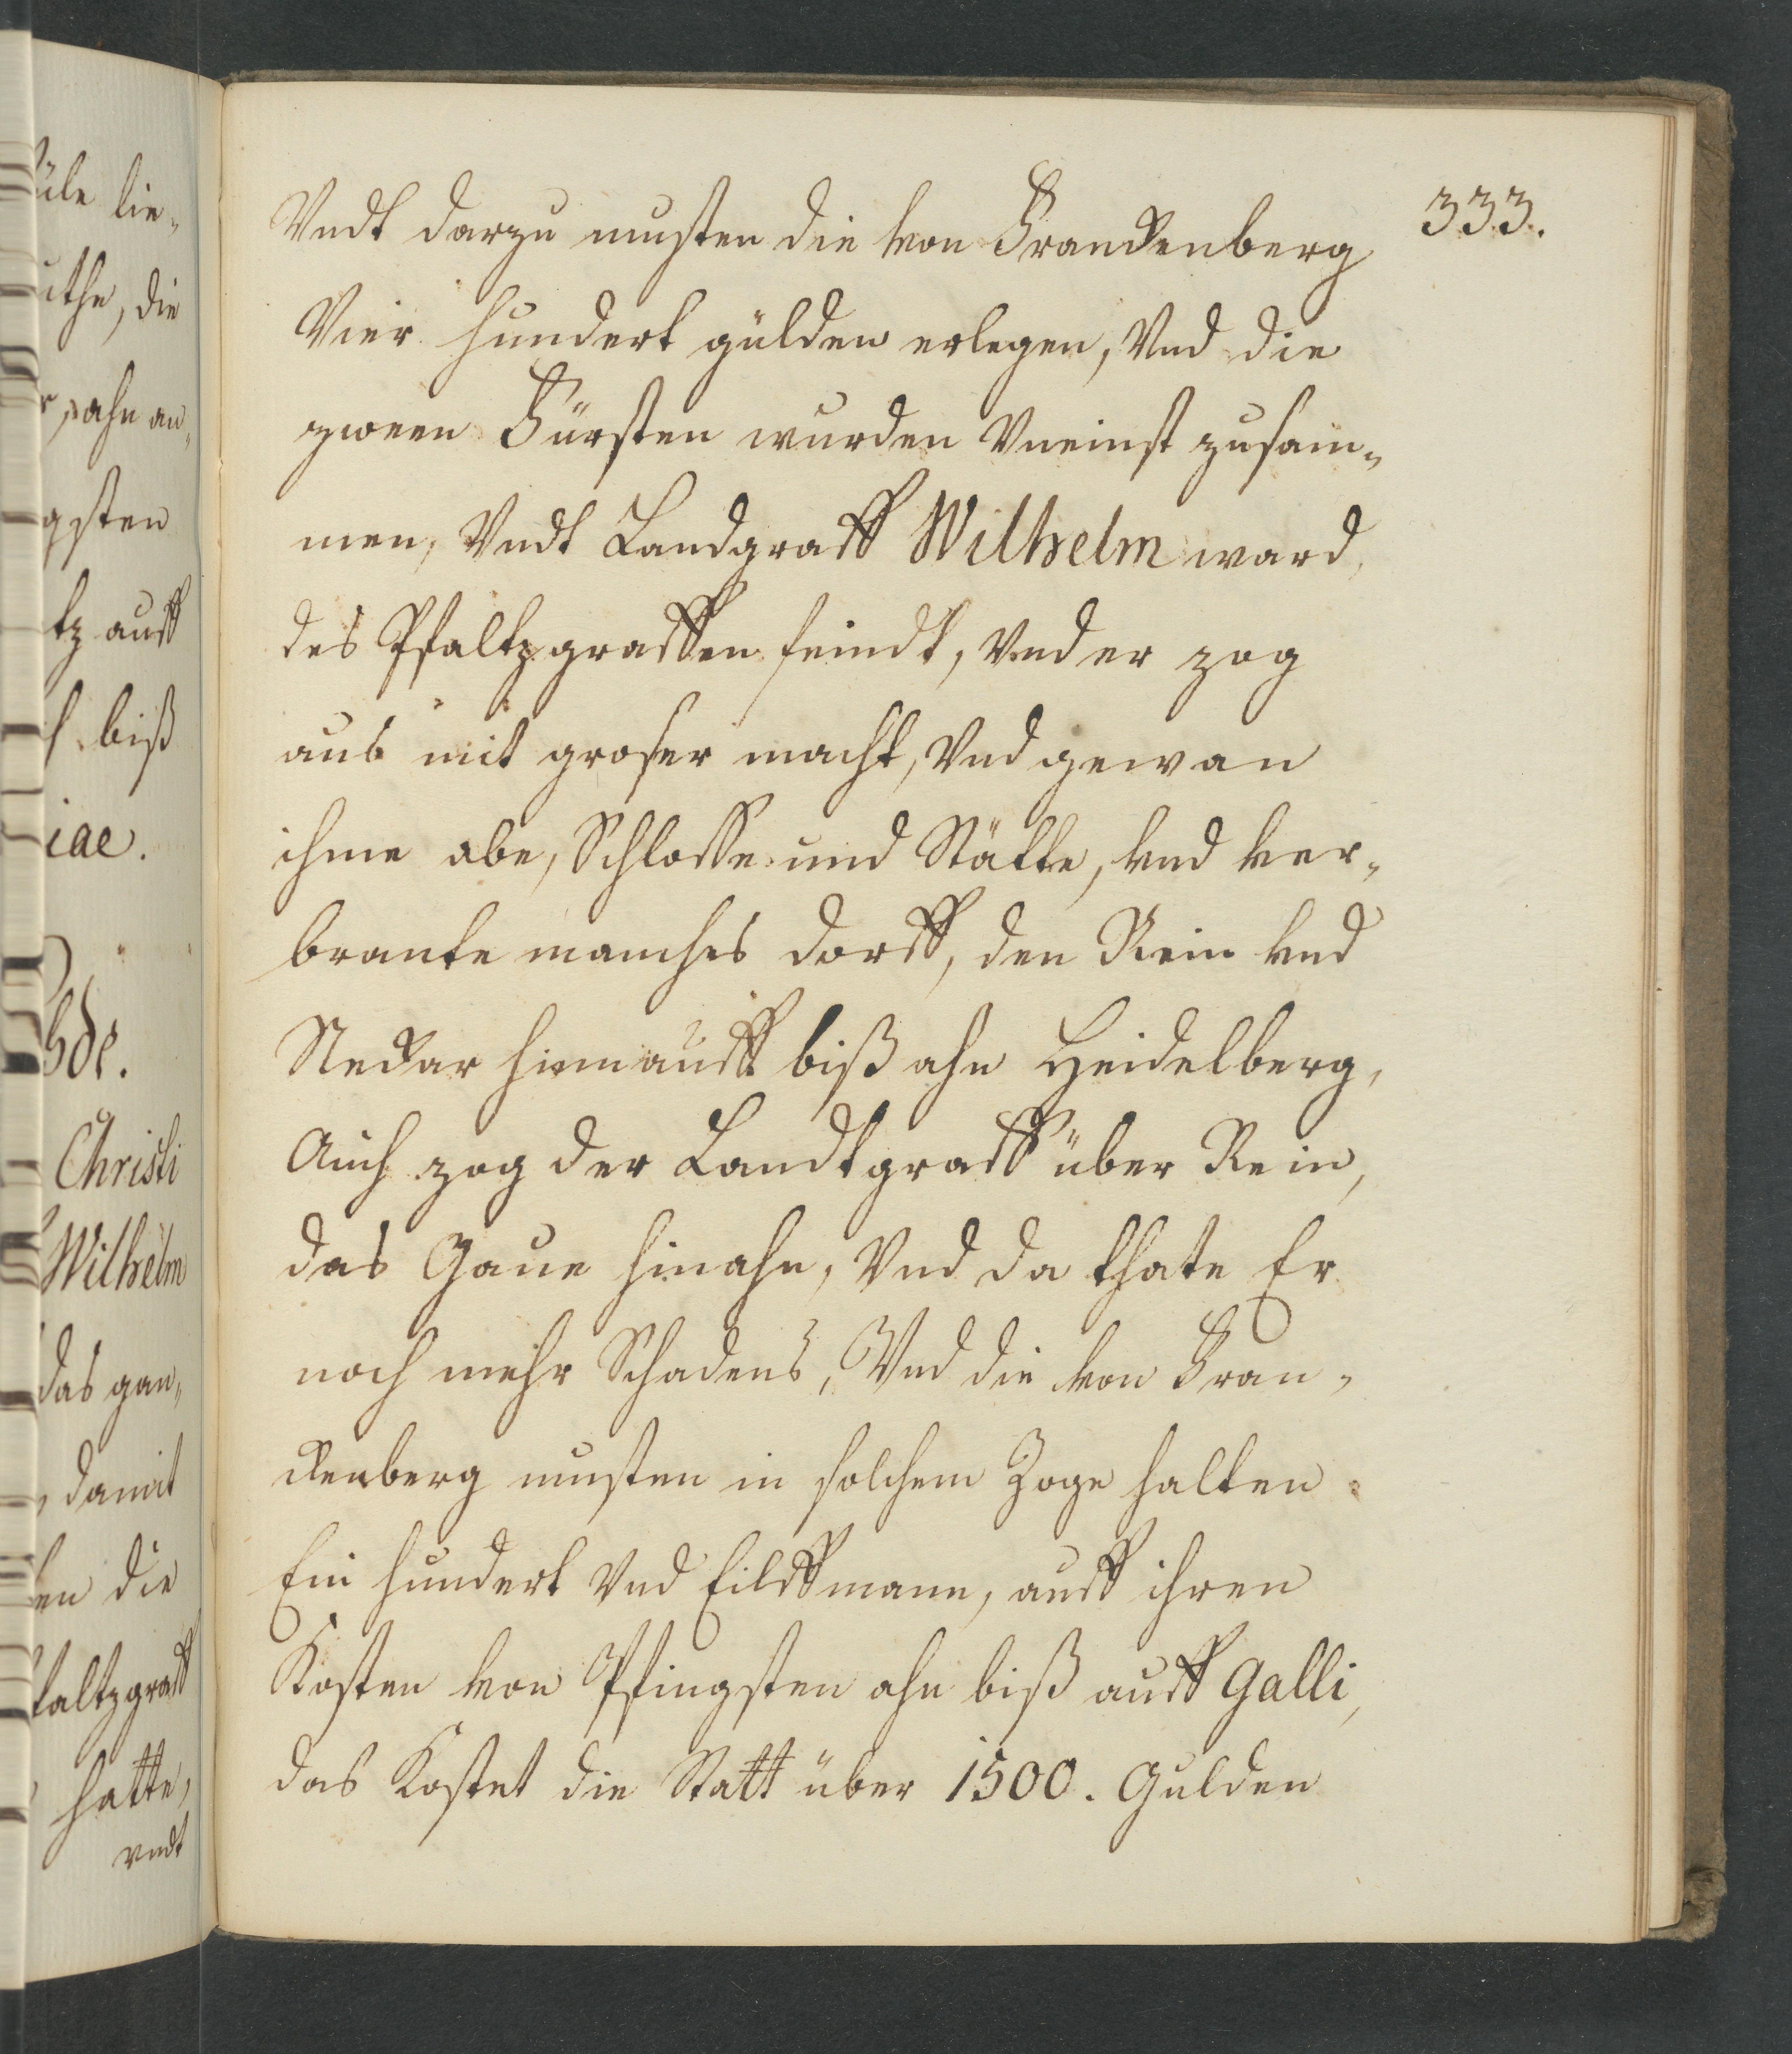 333.
Vndt darzu musten die von Franckenberg
Vier hundert gülden erlegen, Vnd die
zween Fürsten wurden Vneinst zusam„
men, Vndt Landgraff Wilhelm ward
des Pfaltzgraffen feindt, Vnd er zog
aus mit groser macht, Vnd gewan
ihme abe, Schlosse und Stätte, vnd ver„
brante manches dorff, den Rein vnd
Neckar hienauff biß ahn Heidelberg,
Auch zog der Landtgraff über Rein,
das Gaue hinahn, Vnd da thate Er
noch mehr Schadens, Vnd die von Fran„
ckenberg musten in solchem Zoge halten
Ein hundert Vnd Eilffmann, auff ihren
Kosten von Pfingsten ahn biß auff Galli,
das Kostet die Statt über 1500. Gulden
lie„
die
ahn an„
gsten
tz auff
biß
iae.
Christi
Wilhelm
das gan„
damit
die
faltzgraff
hatte,
vndt